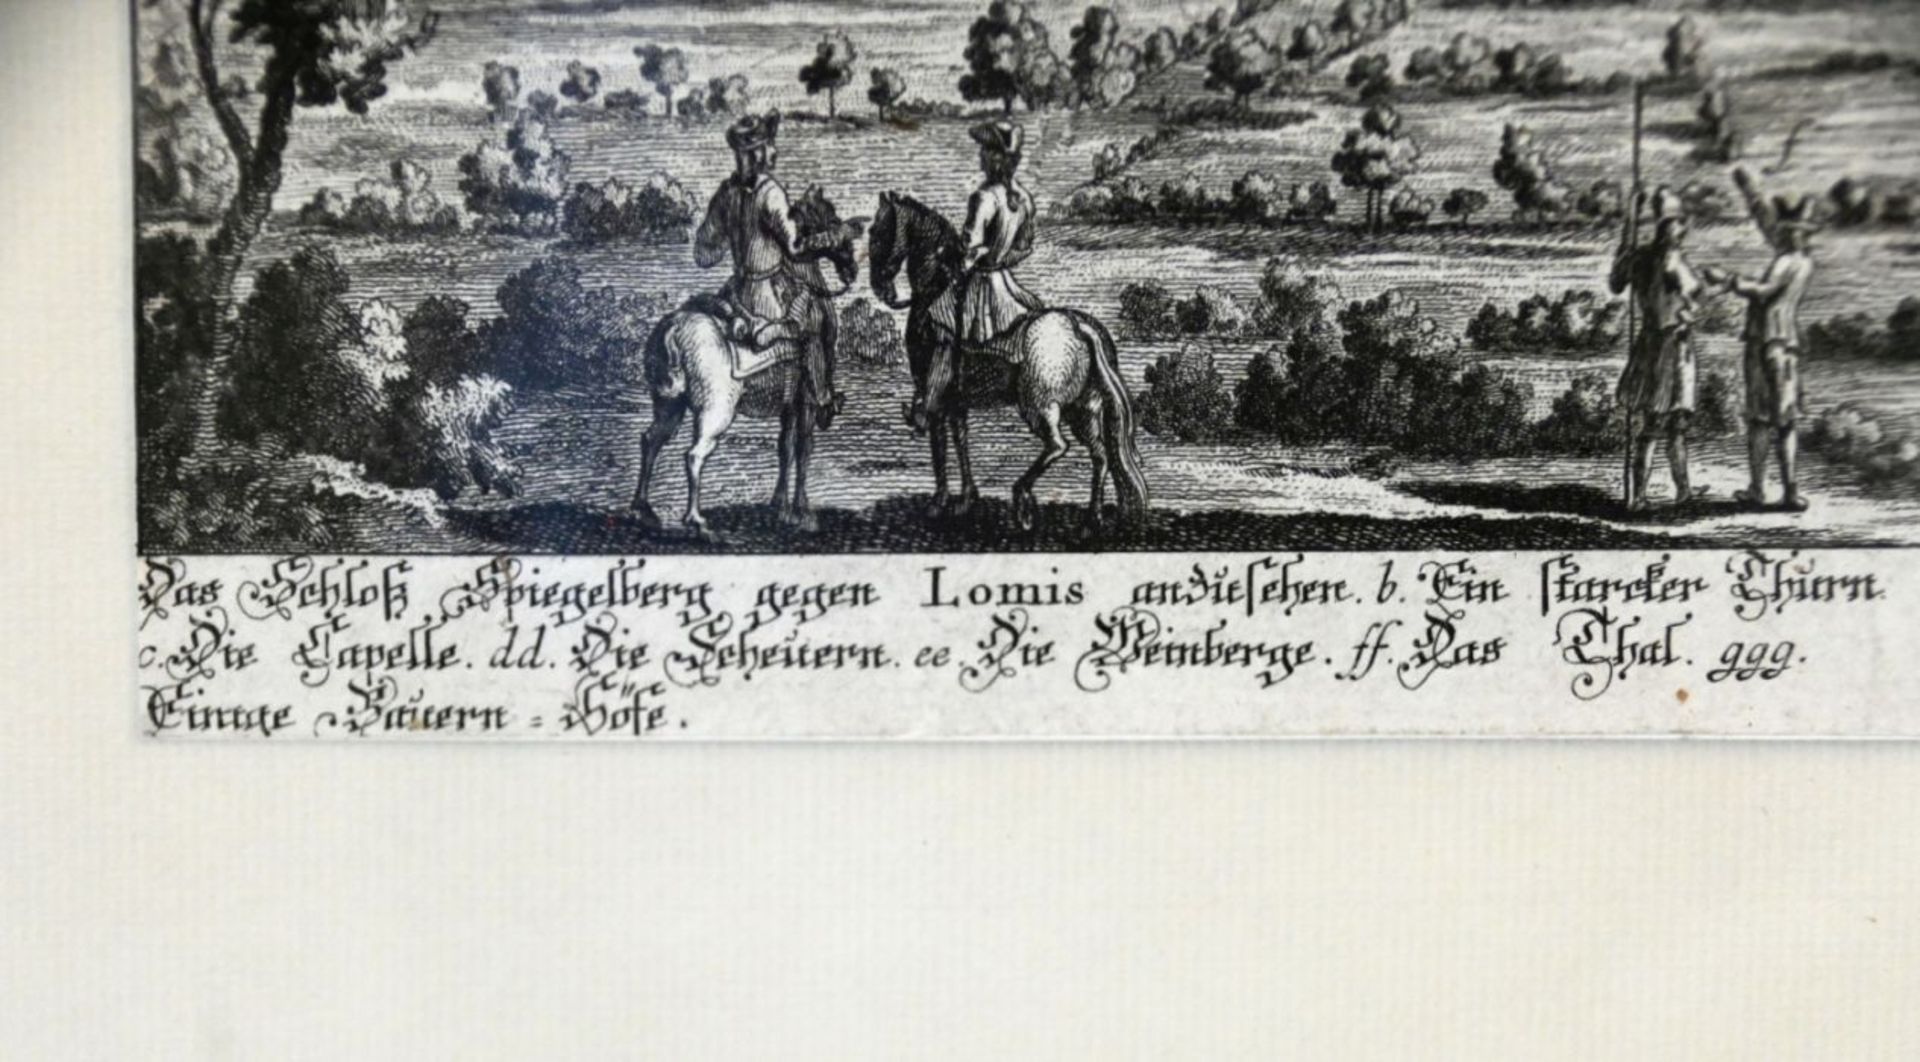 Das Schloß Spiegelberg gegen Lomis anzusehen. b. Ein starcker Thurn.
c. Die Capelle. dd. Die Scheuern. ee. Die Weinberge. ff. Das Thal. ggg.
Einige Bauern = Höfe.